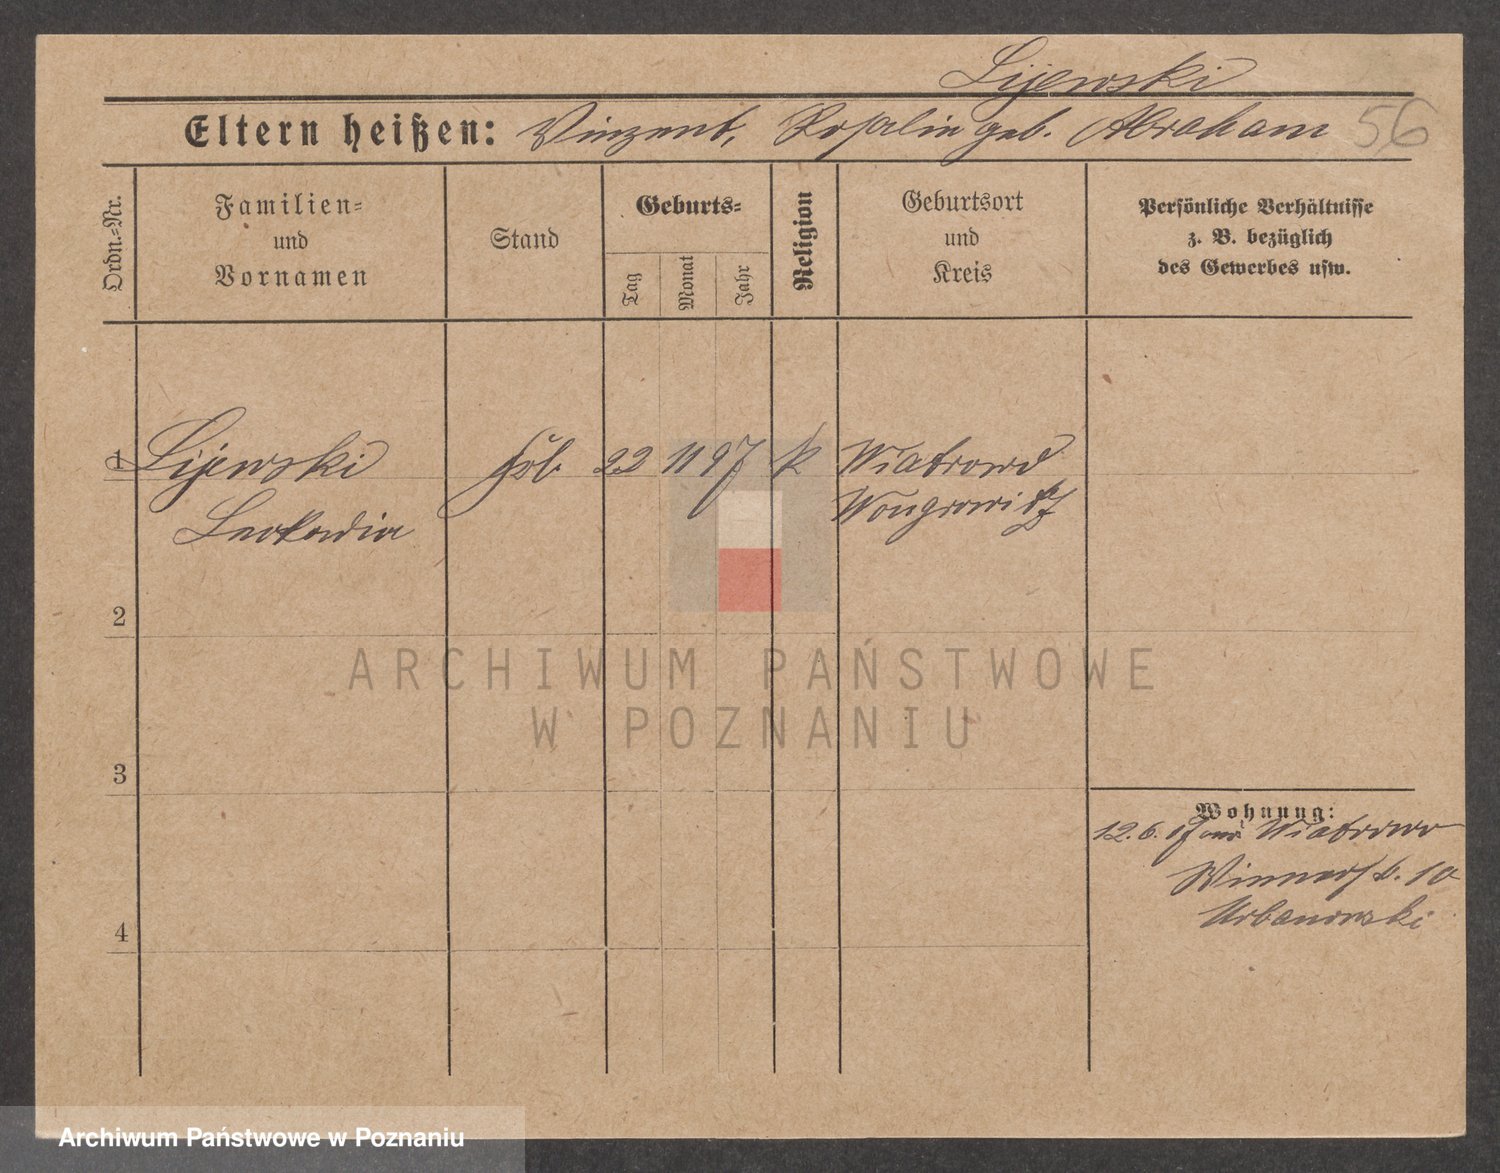 Lijewski
Eltern heißen: Vinzent, Rosalie geb. Abraham 56
Ordn.-Nr.
Familien-
und
Vornamen
Stand
Geburts-
Tag
Monat
Jahr
Religion
Geburtsort
und
Kreis
Persönliche Verhältnisse
z. B. bezüglich
des Gewerbes usw.
1 Lijewski 22 11 97 k Wiatrowo
Leokadia Wongrowitz
2
ARCHIWUM PAŃSTWOWE
W POZNANIU
3
Wohnung:
12.6. 17 Wiatrowo
10
Urbanowski
4
Archiwum Państwowe w Poznaniu